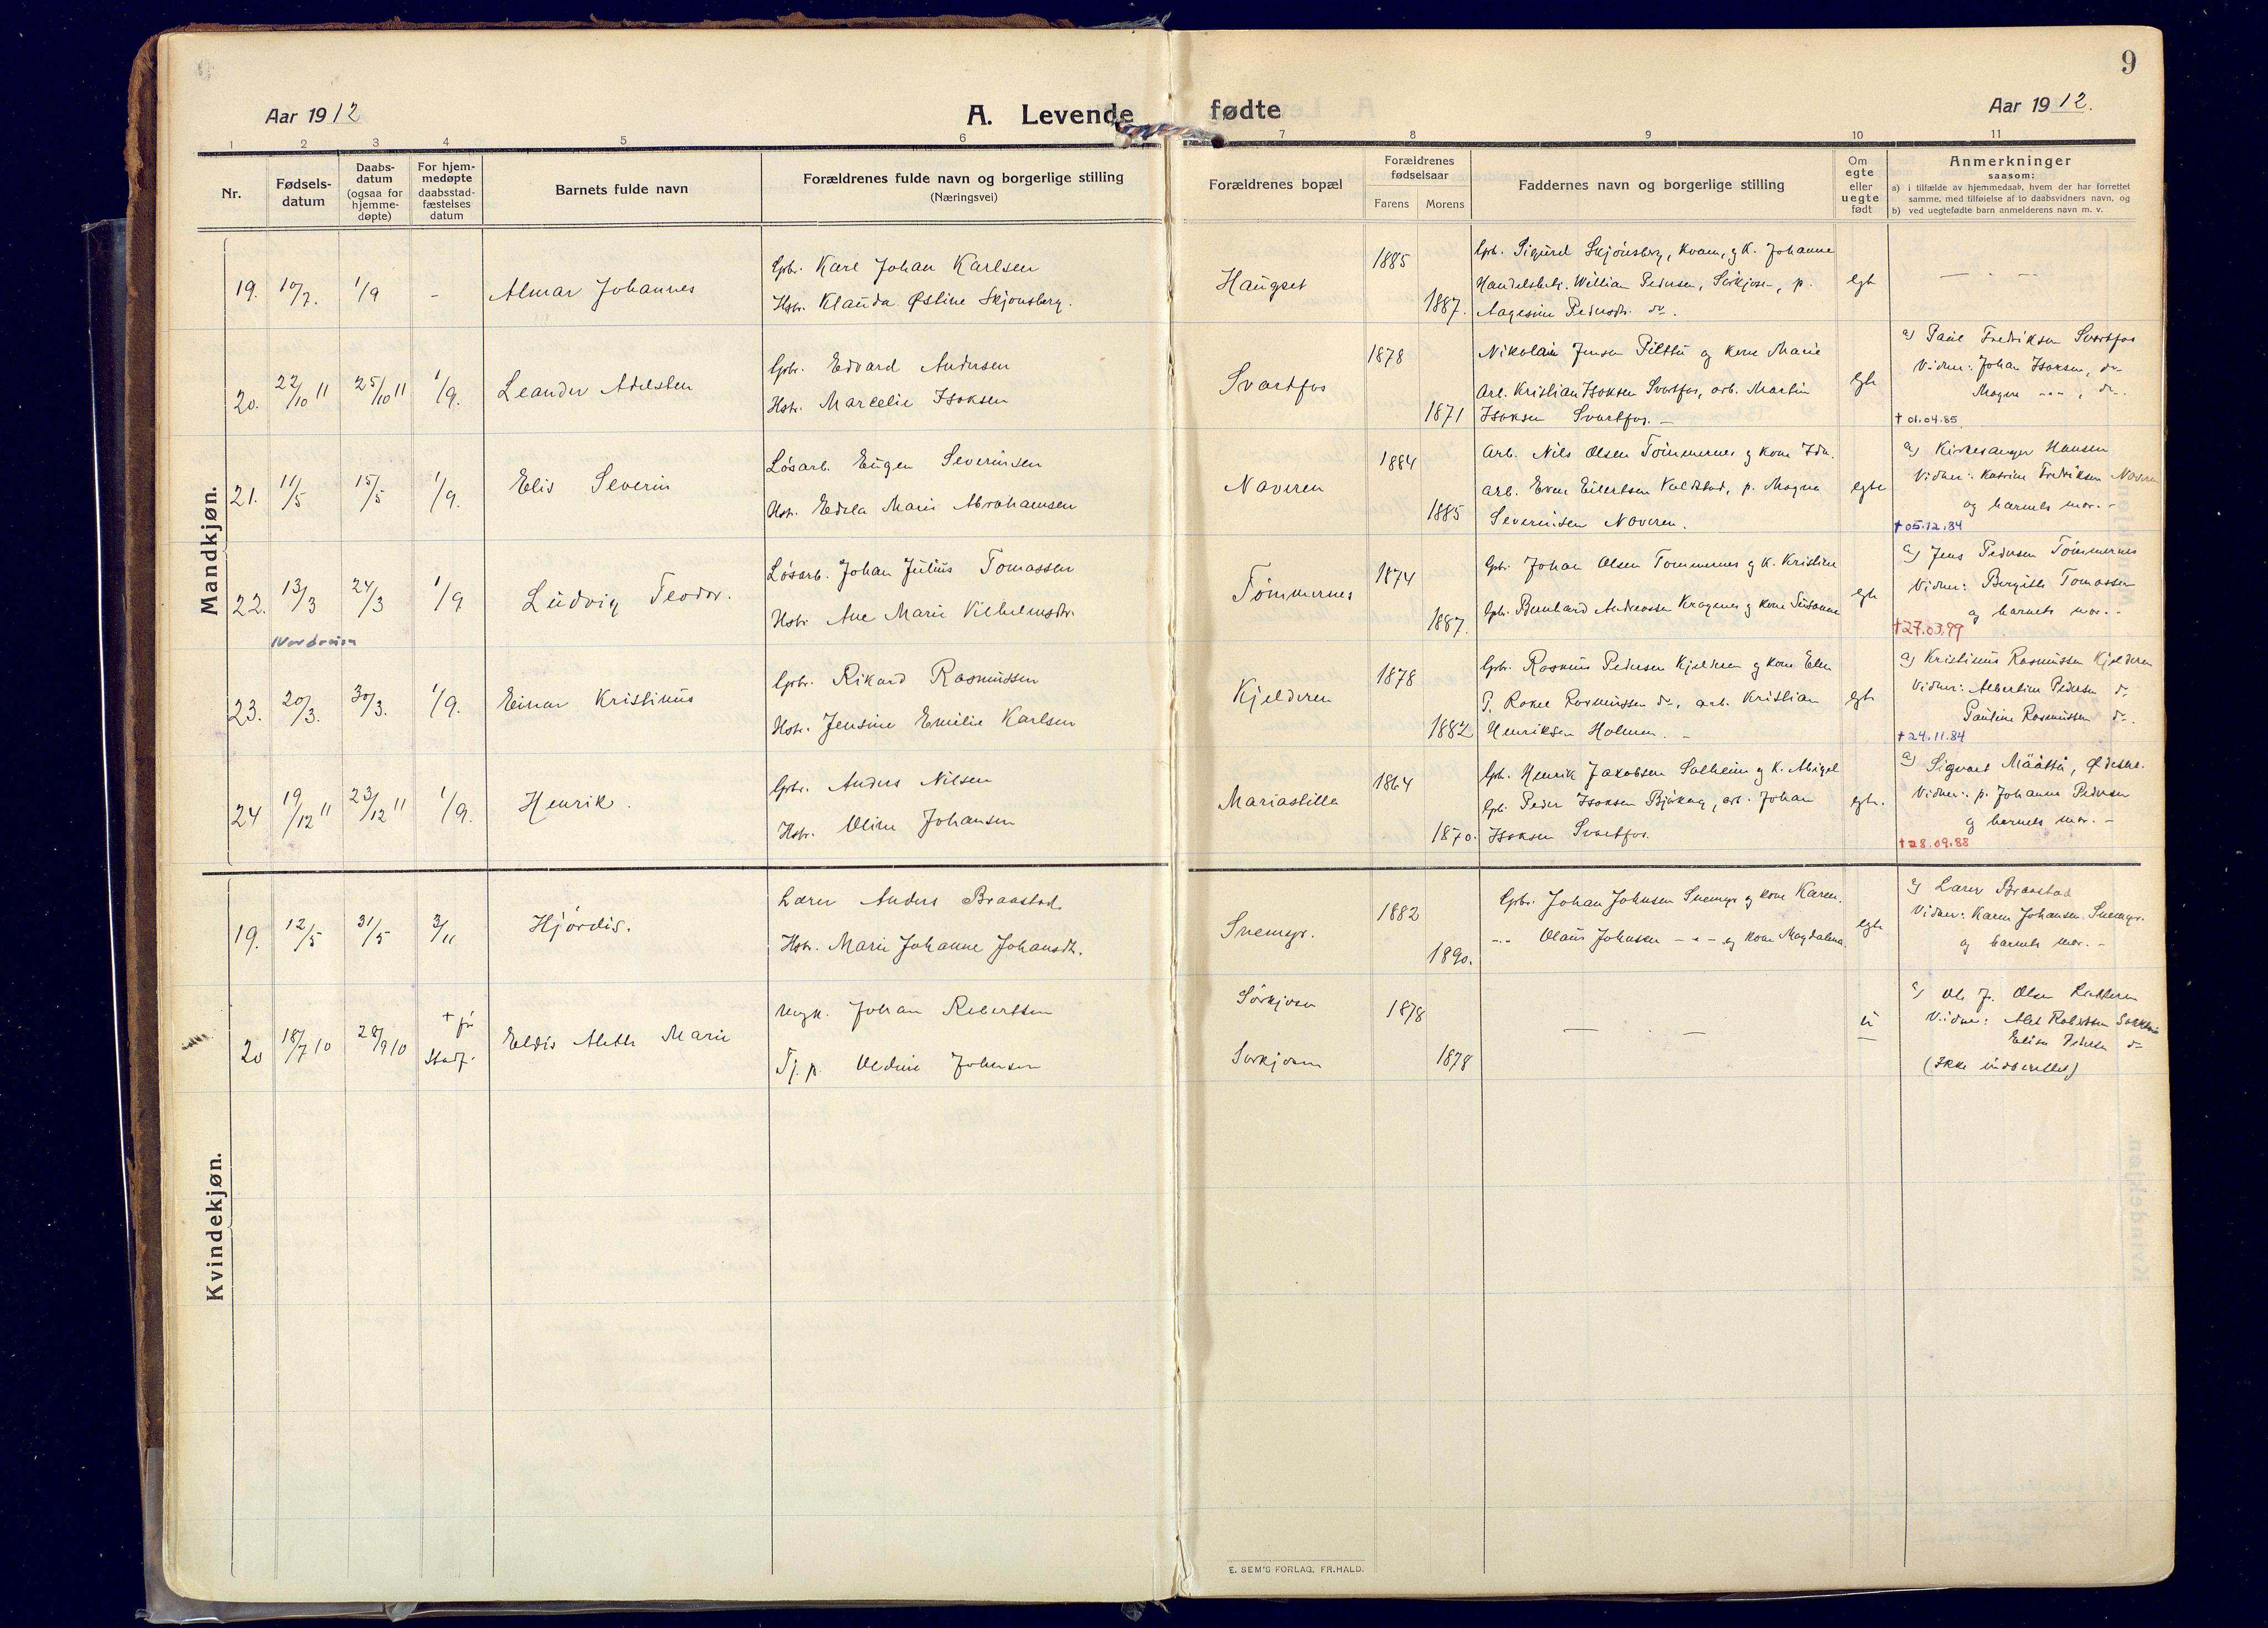 9
Aar 1912
A. Levende
fødte
Aar 1912.
1 2 3 4 5 6 7 8 9 10 11
Nr.
Fødsels-
datum
Daabs-
datum
(ogsaa for
hjemme-
døpte)
For hjem-
medøpte
daabsstad-
fæstelses
datum
Barnets fulde navn
Forældrenes fulde navn og borgerlige stilling
(Næringsvei)
Forældrenes bopæl
Forældrenes
fødselsaar
Farens Morens
Faddernes navn og borgerlige stilling
Om
egte
eller
uegte
født
Anmerkninger
saasom:
a) i tilfælde av hjemmedaab, hvem der har forrettet
samme, med tilføielse af to daabsvidners navn, og
b) ved uegtefødte barn anmelderens navn m. v.
Mandkjøn.
19. 10/7. 1/9 - Almar Johannes
Gpbr. Karl Johan Karlsen
Hstr. Klauda Østine Skjønsberg.
Haugset
1885
1887.
Gpb. Sigurd Skjønsberg, Kvam, og K. Johanne
Handelsbetj. William Pedersen, Sørkjosen, p.
Aagesine Pedersdtr. do.
egte
20. 22/10 11 25/10 11 1/9. Leander Adelsten
Gpbr. Edvard Andersen
Hstr. Marcelie Isaksen
Svartfos
1878
1871
Nikolai Jensen Pilttu og kone Marie
Arb. Kristian Isaksen Svartfos, arb. Martin
Isaksen Svartfos. -
egte
a) Paul Fredriksen Svartfos
Vidner: Johan Isaksen, do
Magna -"- , do.
† 01.04.85
21. 11/5 15/5 1/9. Elis Severin
Løsarb. Eugen Severinsen
Hstr. Edela Marie Abrahamsen
Naveren
1884
1885
Arb. Nils Olsen Tømmernes og kone Ida.
Arb. Even Eilertsen Valdstad, p. Magna
Severinsen Naveren.
egte
a) Kirkesanger Hansen
Vidner: Katrine Fredriksen Naveren
og barnets mor. -
† 05.12.84
22. 13/3 24/3 1/9 Ludvig Teodor.
Nordreisa
Løsarb. Johan Julius Tomassen
Hstr. Ane Marie Vilhelmsdtr.
Tømmernes
1874
1887.
Gpbr. Johan Olsen Tømmernes og K. Kristine
Gpb. Bernhard Andreassen Kragenes og kone Susanne
egte
a) Jens Pedersen Tømmernes
Vidner: Bergitte Tomassen
og barnets mor. -
† 27.03.99
23. 20/3. 30/3. 1/9. Einar Kristinus
Gpbr. Rikard Rasmussen
Hstr. Jensine Emilie Karlsen
Kjelderen
1878
1882
Gpbr. Rasmus Pedersen Kjelderen og kone Elen
P. Rakel Rasmussen do, arb. Kristian
Henriksen Holmen. -
egte
a) Kristinus Rasmussen Kjelderen
Vidner: Albertine Pedersen do
Pauline Rasmussen do.
† 24.11.84
24 19/12 11 23/12 11 1/9. Henrik.
Gpbr. Anders Nilsen
Hstr. Oline Johansen
Mariastilla
1864
1870.
Gpb. Henrik Jakobsen Solheim og K. Abigel
Gpb. Peder Isaksen Bjørkeng, arb. Johan
Isaksen Svartfos.
egte.
a) Sigvart Määttä,
Vidner: p. Johanna Pedersen
og barnets mor. -
† 28.09.88
Kvindekjøn.
19. 12/5 31/5 3/11 Hjørdis.
Lærer Anders Braastad
Hstr. Marie Johanne Johansdtr.
Snemyr.
1882
1890.
Gpbr. Johan Johnsen Snemyr og kone Karen.
-"- Olaus Johnsen -"- og kone Magdalena.
egte
a) Lærer Braastad
Vidner: Karen Johansen Snemyr.
og barnets mor. -
20 18/7 10 28/9 10 † før
Stadf.
Eldis Aleth Marie
Ungk. Johan Robertsen
Tj. p. Oldine Johnsen
Sørkjosen
Sørkjosen
1878
1878
u
a) Ole J. Olsen
Vidner: Alet Robertsen Sørkjosen
Elisa Pedersen do
(Ikke indberettet)
E. SEM'S FORLAG, FR.HALD.